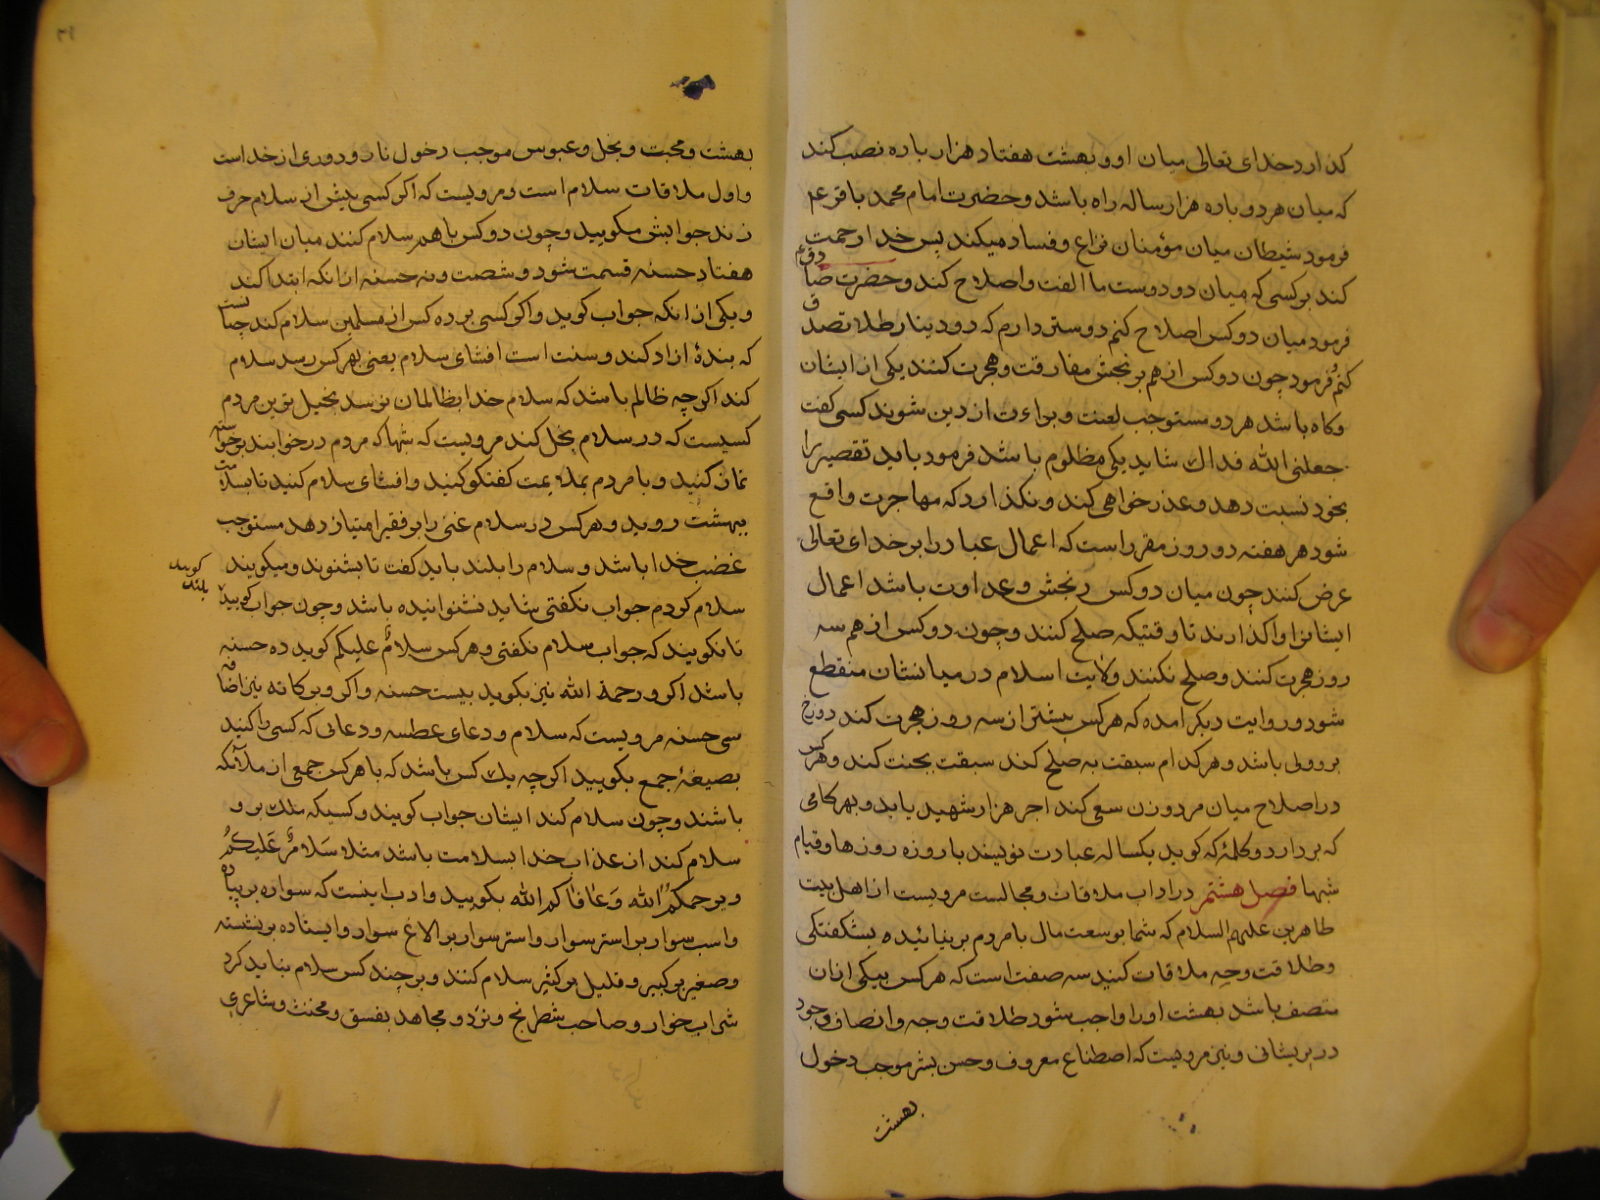 کذارد خدای تعالی میان او و بهشت هفتاد هزار باره نصب کند
که میان هر دو باره هزار ساله راه باشد و حضرت امام محمد باقر عم
فرمود شیطان میان مؤمنان نزاع و فساد میکند پس خدا رحمت
کند بر کسی که میان دو دوست ما الفت و اصلاح کند و حضرت صادق ع
فرمود میان دو کس اصلاح کنم دوستر دارم که دو دینار طلا تصدق
کنم و فرمود چون دو کس از هم برنجش مفارقت و هجرت کنند یکی از ایشان
و کاه باشد هر دو مستوجب لعنت و براءت از دین شوند کسی کفت
جعلنی الله فداك شاید یکی مظلوم باشد فرمود باید تقصیر را
بخود نسبت دهد و عذر خواهی کند و نکذارد که مهاجرت واقع
شود هر هفته دو روز مقرر است که اعمال عباد را بر خدای تعالی
عرض کنند چون میان دو کس رنجش و عداوت باشد اعمال
ایشانرا واکذارند تا وقتیکه صلح کنند و چون دو کس از هم سه
روز هجرت کنند و صلح نکنند ولایت اسلام در میانشان منقطع
شود و روایت دیکر امده که هر کس بیشتر از سه روز هجرت کند دوزخ
بر وولی باشد و هر کدام سبقت به صلح کند سبقت بجنت کند و هر کس
در اصلاح میان مرد و زن سعی کند اجر هزار شهید یابد و بهر کامی
که بردارد و کلمهٔ که کوید یکساله عبادت نویسند با روزه روزها و قیام
شبها فصل هشتم در اداب ملاقات و مجالست مرویست از اهل بیت
طاهرین علیهم السلام که شما بوسعت مال با مردم برنیائید ه بشکفتکی
و طلاقت وجه ملاقات کنید سه صفت است که هر کس بیکی از ان
متصف باشد بهشت او را واجب شود طلاقت وجه و انصاف و جود
در پریشانی و نیز مرویست که اصطناع معروف و حسن بشر موجب دخول
بهشت
بهشت و محبت و بخل و عبوس موجب دخول نار و دوری از خداست
و اول ملاقات سلام است و مرویست که اکر کسی پیش از سلام حرف
زند جوابش مکویید و چون دو کس با هم سلام کنند میان ایشان
هفتاد حسنه قسمت شود و شصت و نه حسنه از انکه ابتدا کند
و یکی از انکه جواب کوید و اکر کسی بر ده کس از مسلمین سلام کند چنانست
که بندهٔ ازاد کند و سنت است افشای سلام یعنی بهر کس رسد سلام
کند اکرچه ظالم باشد که سلام خدا بظالمان نرسد بخیل ترین مردم
کسیست که در سلام بخل کند مرویست که شبها که مردم در خوابند برخواسته
نماز کنید و با مردم بملایمت کفتکو کنید و افشای سلام کنید تا بسلامت
ببهشت روید و هر کس در سلام غنی را بر فقیر امتیاز دهد مستوجب
غضب خدا باشد و سلام را بلند باید کفت تا بشنوند و میکویند
سلام کردم جواب نکفتی شاید نشنوانیده باشد و چون جواب کویید
بلند کویید
تا نکویند که جواب سلام نکفتی و هر کس سلامٌ علیکم کوید ده حسنه
باشد اکر و رحمة الله نیز بکوید بیست حسنه و اکر و برکاته نیز اضافه
سی حسنه مرویست که سلام و دعای عطسه و دعائی که کسی را کنید
بصیغهٔ جمع بکویید اکرچه یك کس باشد که با هر کس جمعی از ملائکه
باشند و چون سلام کند ایشان جواب کویند و کسیکه ملك بر و
سلام کند از عذاب خدا بسلامت باشد مثلا سَلامٌ عَلیکُم
و یرحمکُمُ الله وَعَافَاکُم الله بکویید و ادب اینست که سواره بر پیاده
و اسب سوار بر استر سوار و استر سوار بر الاغ سوار و ایستاده بر نشسته
و صغیر بر کبیر و قلیل بر کثیر سلام کنند و بر چند کس سلام نباید کرد
شراب خوار و صاحب شطرنج و نرد و مجاهد بفسق و مخنث و شاعری